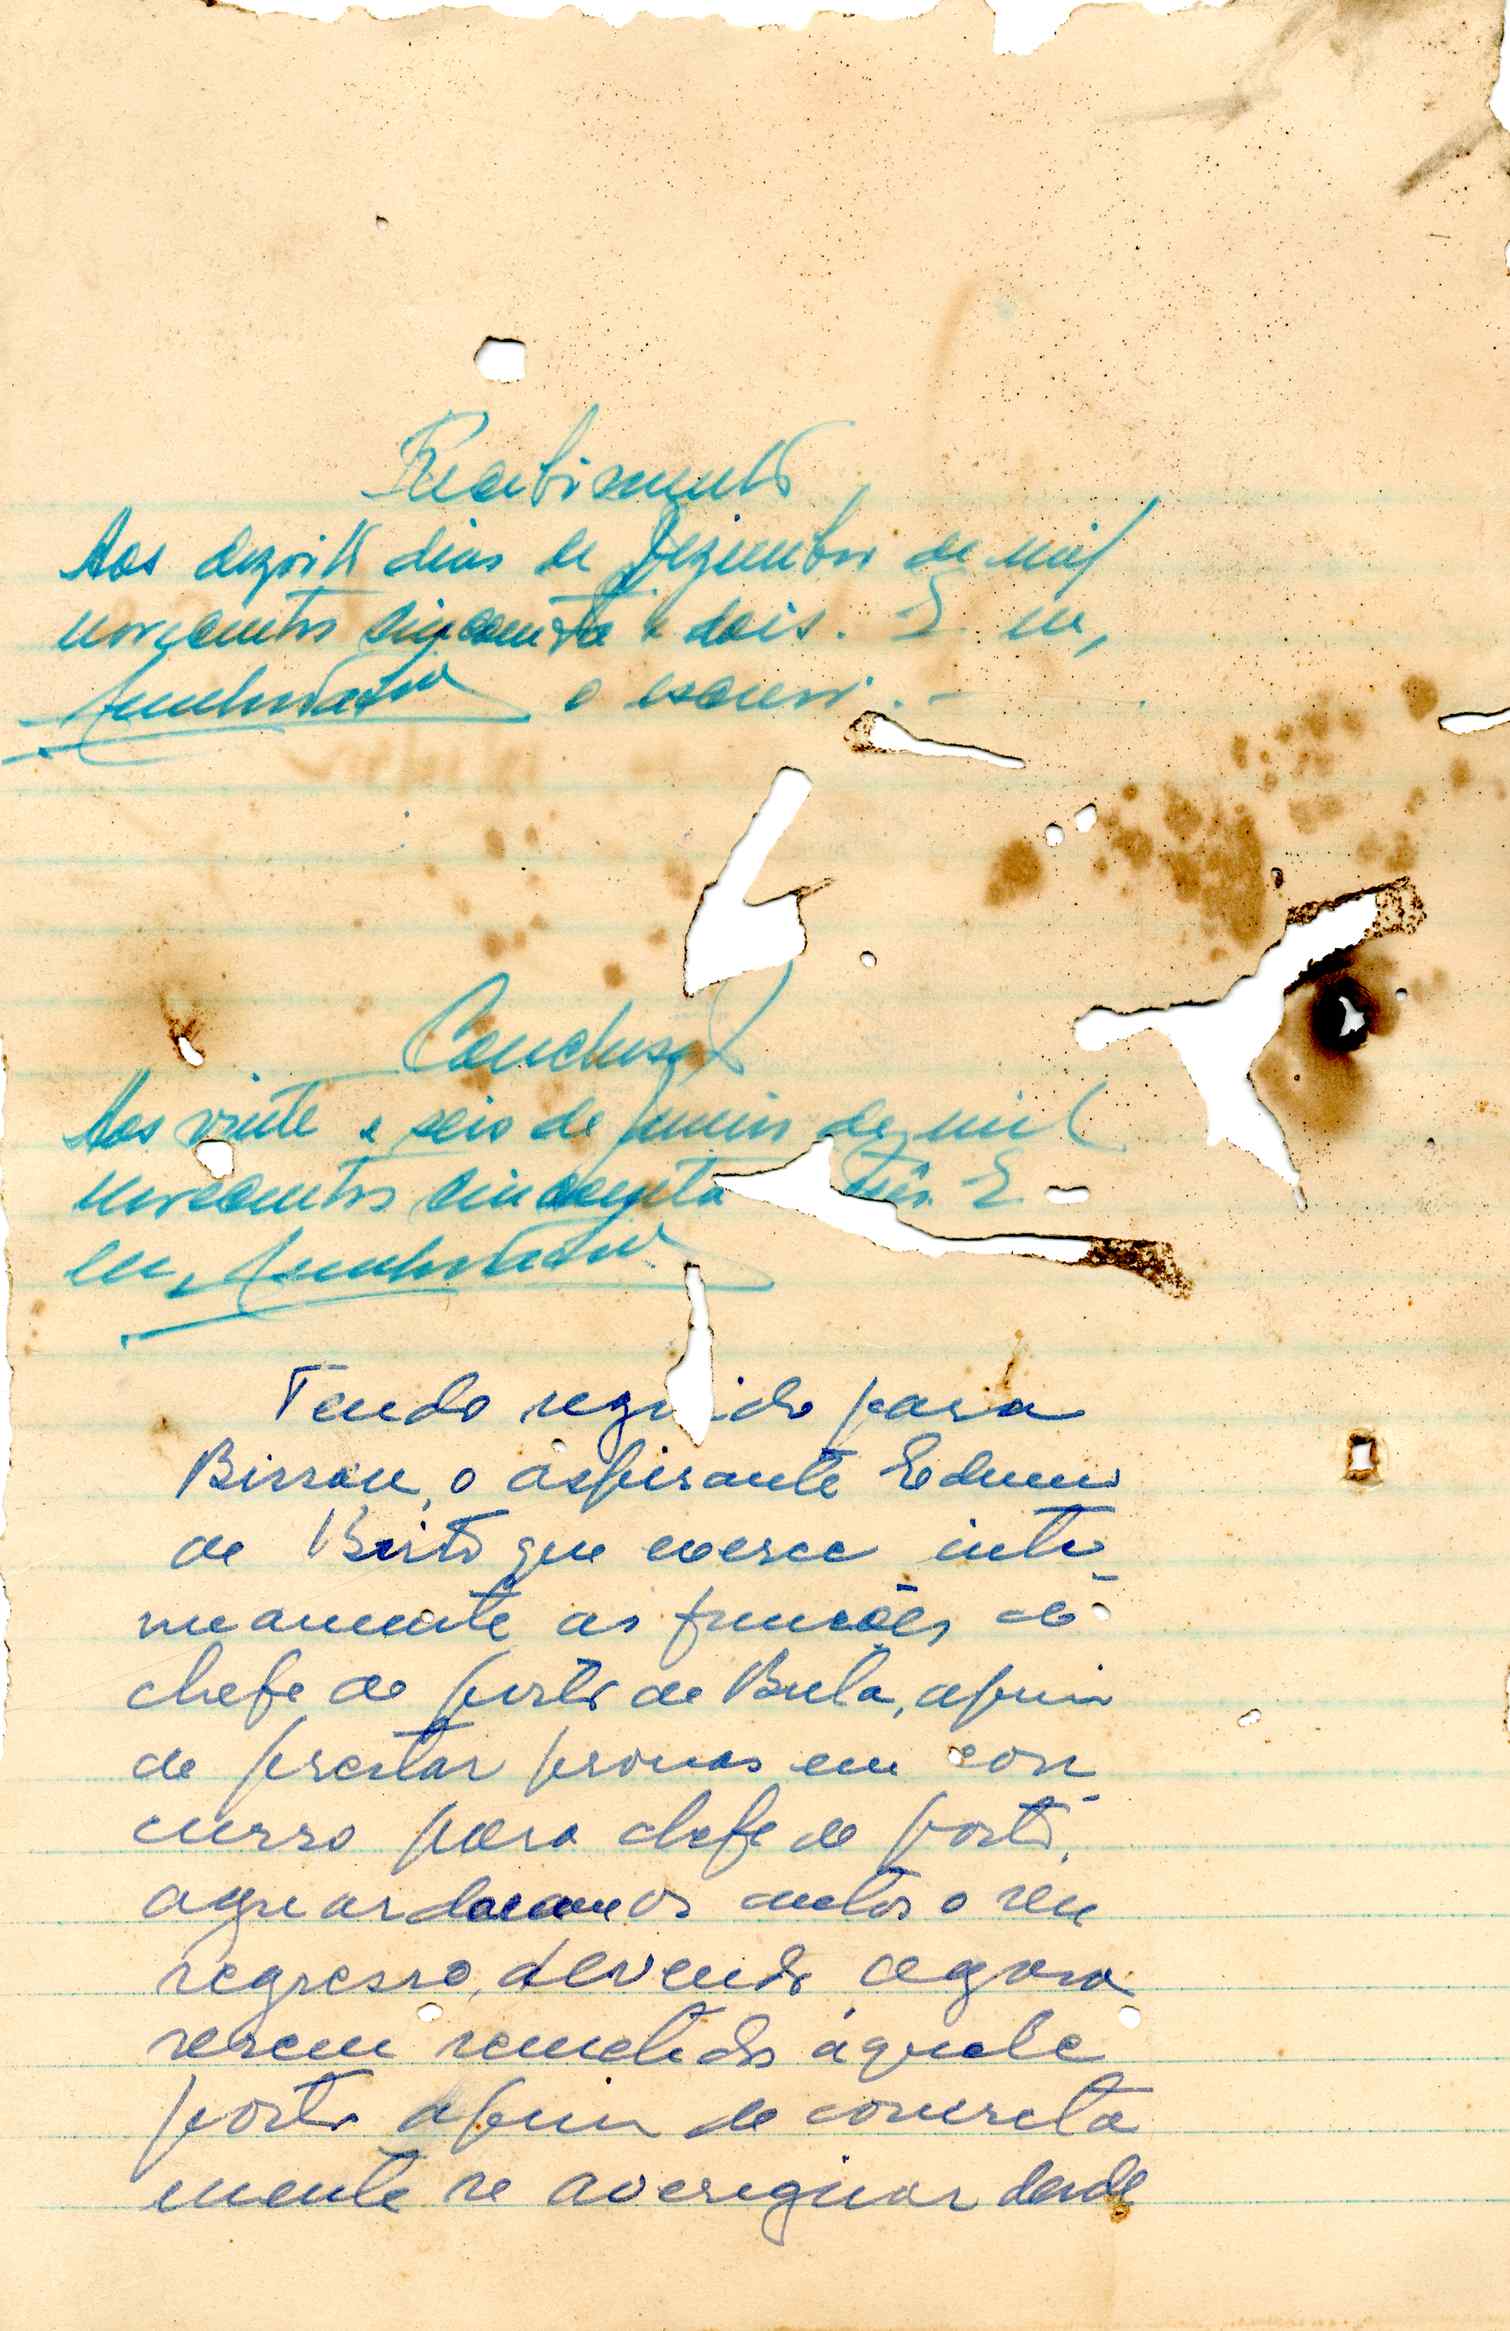 Recebimento
Aos dezoito dias de Dezembro de mil
novecentos cincoenta e dois. E eu,
o escrevi. -
Conclusão
Aos vinte e seis de Janeiro de mil
novecentos cincoenta três. E
eu,
Tendo seguido para
Bissau, o aspirante Edmundo
de Brito que exerce inte-
rinamente as funções de
chefe de posto de Bula, afim
de prestar provas em con-
curso para chefe de posto,
aguardavam os autos o seu
regresso, devendo agora
serem remetidos àquele
posto afim de concreta
mente se averiguar desde